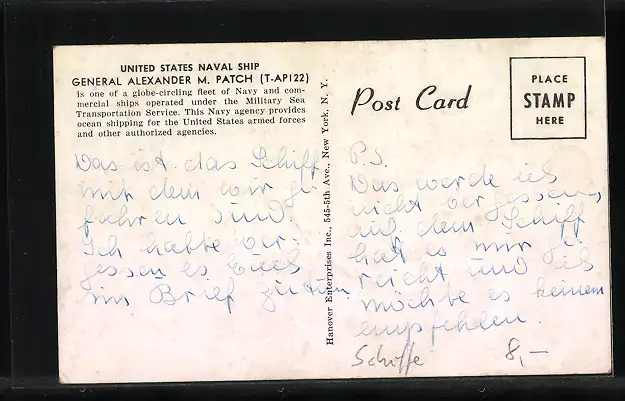 UNITED STATES NAVAL SHIP
GENERAL ALEXANDER M. PATCH (T-AP122)
is one of a globe-circling fleet of Navy and com-
mercial ships operated under the Military Sea
Transportation Service. This Navy agency provides
ocean shipping for the United States armed forces
and other authorized agencies.
Das ist das Schiff
mit dem wir ge
fahren sind.
Ich hatte ver-
gessen es Euch
im Brief zu tun
Hanover Enterprises Inc., 545-5th Ave., New York, N. Y.
Post Card
PLACE
STAMP
HERE
P.S.
Das werde ich
nicht vergessen,
auf dem Schiff
hat es mir ge
reicht und ich
möchte es keinem
empfehlen.
Schiffe 8,-